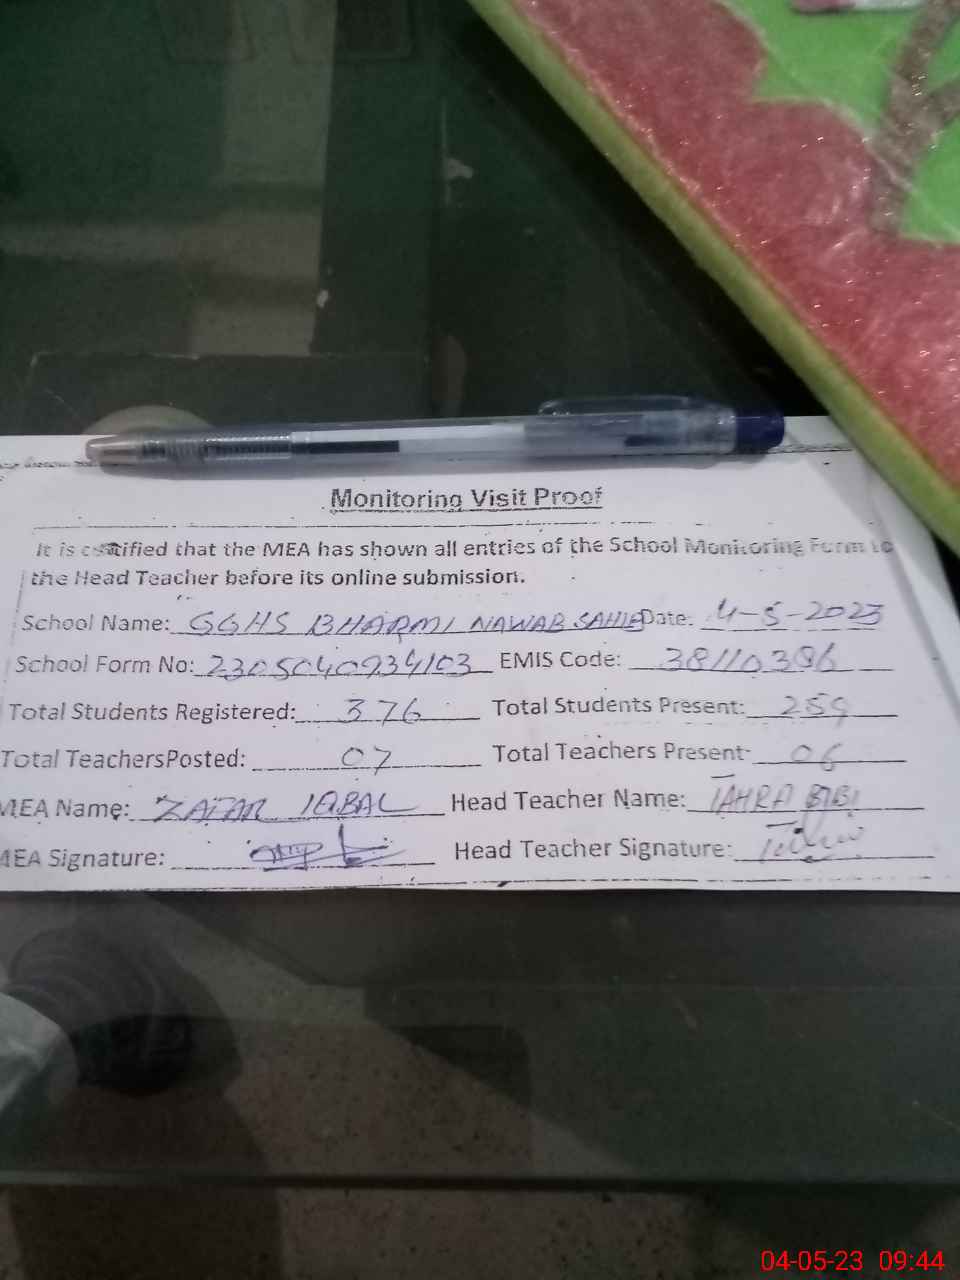 Monitoring Visit Proof
It is certified that the MEA has shown all entries of the School Monitoring Form to
the Head Teacher before its online submission.
School Name: GGHS BHARMI NAWAB SAHIB Date: 4-5-2023
School Form No: 2305040934103 EMIS Code: 38110386
Total Students Registered: 376 Total Students Present: 259
Total TeachersPosted: 07 Total Teachers Present: 06
MEA Name: ZAFAR IQBAL Head Teacher Name: TAHRA BIBI
MEA Signature: Head Teacher Signature:
04-05-23 09:44